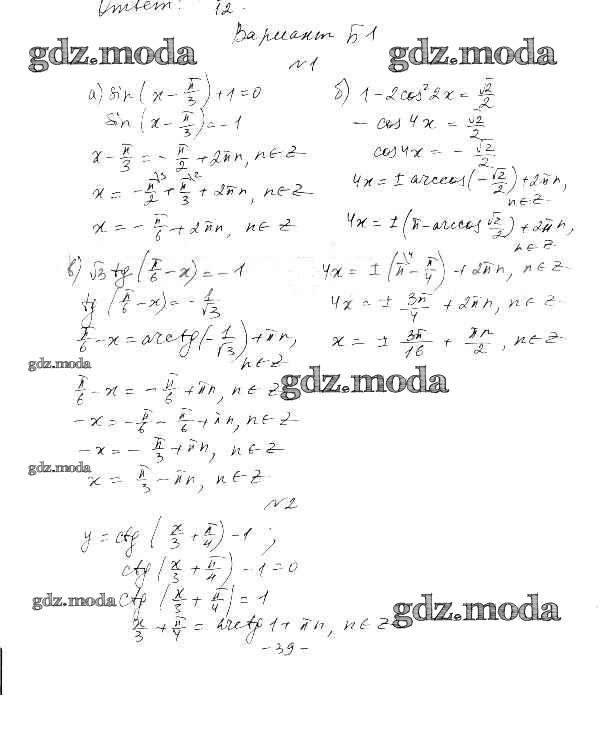 Ответ: 12.
Вариант Б1
gdz.moda gdz.moda
№1
а) sin(x − π/3) + 1 = 0
sin(x − π/3) = −1
x − π/3 = −π/2 + 2πn, n∈Z
x = −π/2 + π/3 + 2πn, n∈Z
x = −π/6 + 2πn, n∈Z
б) 1 − 2cos²2x = √2/2
− cos 4x = √2/2
cos 4x = − √2/2
4x = ± arccos(−√2/2) + 2πn,
n∈Z.
4x = ± (π − arccos √2/2) + 2πn,
n∈Z.
4x = ± (π − π/4) + 2πn, n∈Z.
4x = ± 3π/4 + 2πn, n∈Z.
x = ± 3π/16 + πn/2, n∈Z.
в) √3 tg(π/6 − x) = −1
tg(π/6 − x) = −1/√3
π/6 − x = arctg(−1/√3) + πn,
n∈Z
gdz.moda
gdz.moda
π/6 − x = −π/6 + πn, n∈Z
−x = −π/6 − π/6 + πn, n∈Z
−x = −π/3 + πn, n∈Z
gdz.moda
x = π/3 − πn, n∈Z
№2
y = ctg(x/3 + π/4) − 1 ;
ctg(x/3 + π/4) − 1 = 0
gdz.moda ctg(x/3 + π/4) = 1
gdz.moda
x/3 + π/4 = arctg 1 + πn, n∈Z
- 39 -